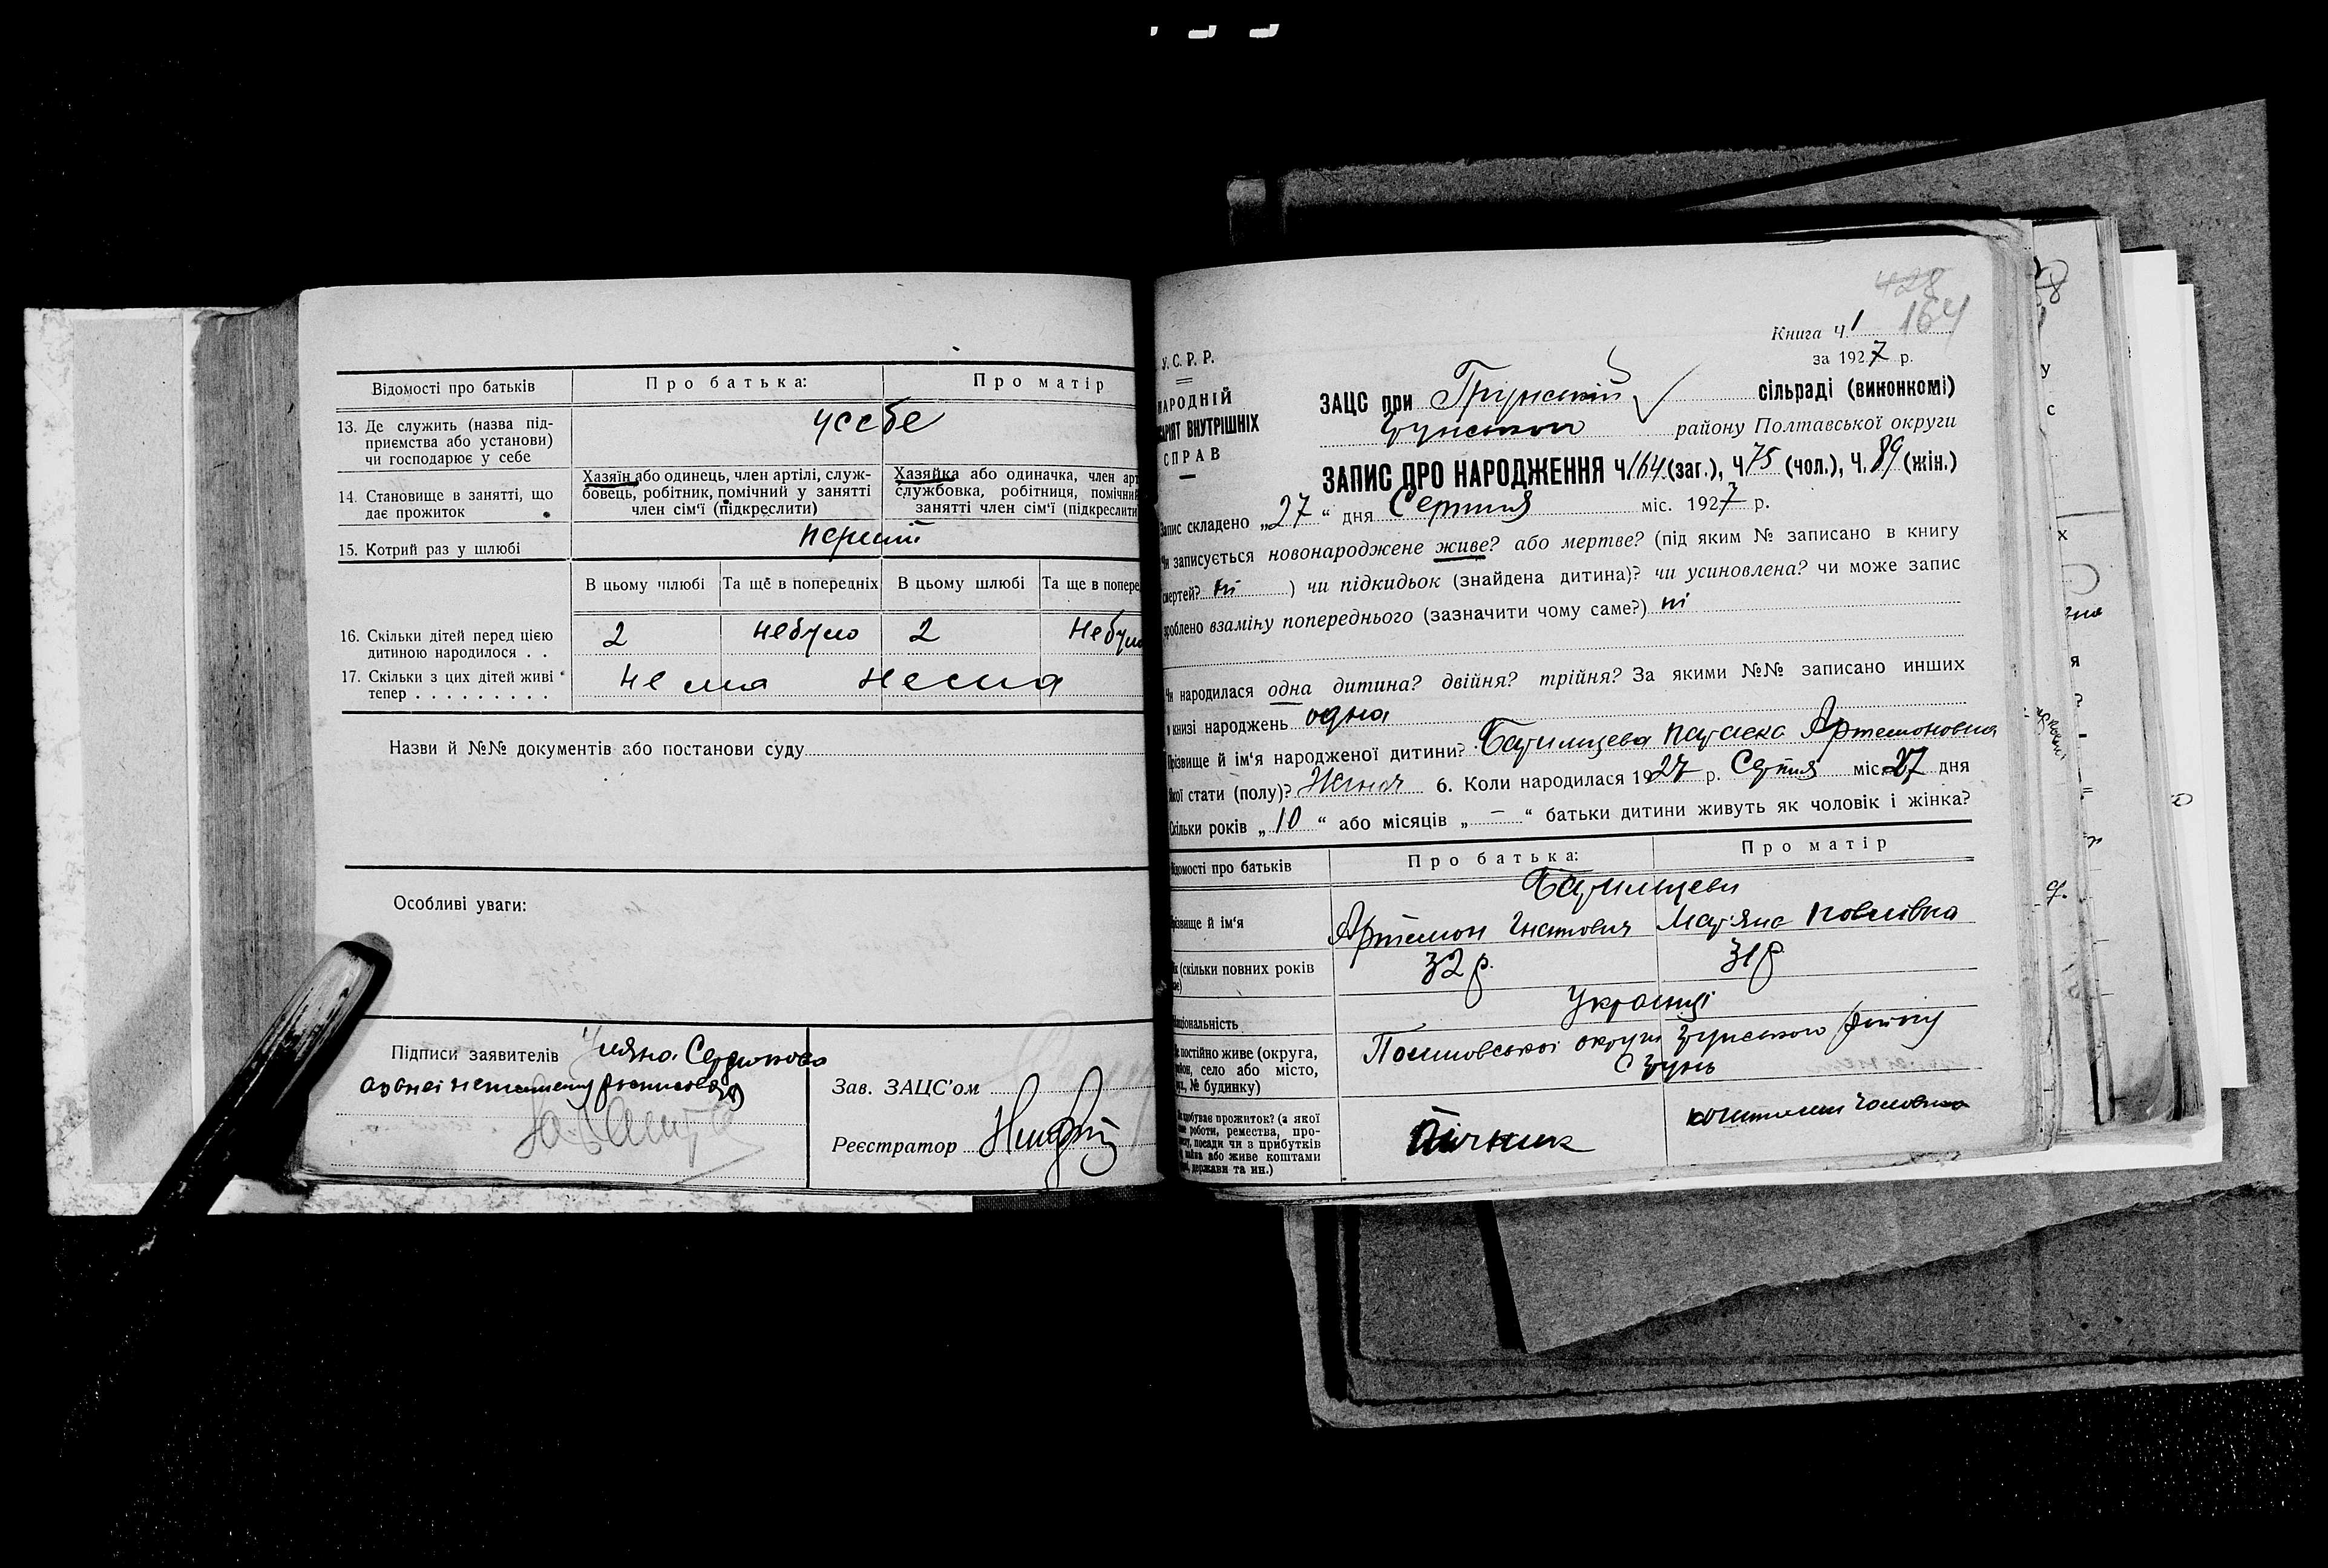 Відомості про батьків
Про батька:
Про матір
13. Де служить (назва під-
приємства або установи)
чи господарює у себе
усебе
14. Становище в занятті, що
дає прожиток
Хазяїн або одинець, член артілі, служ-
бовець, робітник, помічний у занятті
член сім'ї (підкреслити)
Хазяйка або одиначка, член арт
службовка, робітниця, помічни
занятті член сім'ї (підкреслити
15. Котрий раз у шлюбі
перший
В цьому шлюбі
Та ще в попередніх
В цьому шлюбі
Та ще в попере
16. Скільки дітей перед цією
дитиною народилося . .
2 небуло 2 Небуло
17. Скільки з цих дітей живі
тепер . . . . . . . . .
нема нема
Назви й №№ документів або постанови суду
Особливі уваги:
Підписи заявителів
Уляна
Зав. ЗАЦС'ом
Реєстратор
428
164
Книга ч. 1
за 1927 р.
У.С.Р.Р.
НАРОДНІЙ
АРІЯТ ВНУТРІШНІХ
СПРАВ
ЗАЦС при Грунській сільраді (виконкомі)
Грунського району Полтавської округи
ЗАПИС ПРО НАРОДЖЕННЯ Ч. 164 (заг.), Ч. 75 (чол.), Ч. 89 (жін.)
Запис складено „27“ дня Серпня міс. 1927 р.
Чи записується новонароджене живе? або мертве? (під яким № записано в книгу
смертей? ні ) чи підкидьок (знайдена дитина)? чи усиновлена? чи може запис
зроблено взаміну попереднього (зазначити чому саме?) ні
Чи народилася одна дитина? двійня? трійня? За якими №№ записано инших
в книзі народжень одна
Прізвище й ім'я народженої дитини? Артемоновна
Якої стати (полу)? Жіноч 6. Коли народилася 1927 р. Серпня міс. 27 дня
Скільки років „10“ або місяців „—“ батьки дитини живуть як чоловік і жінка?
Відомості про батьків
Про батька:
Про матір
Прізвище й ім'я
Артемон Гнатович
32 р.
31 р
(скільки повних років
Національність
Українці
постійно живе (округа,
район, село або місто,
вул., № будинку)
Полтавської округи Грунського району
с Грунь
добуває прожиток? (з якої
роботи, ремества, про-
посади чи з прибутків
або живе коштами
держави та ин.)
Пічник
коштами чоловіка